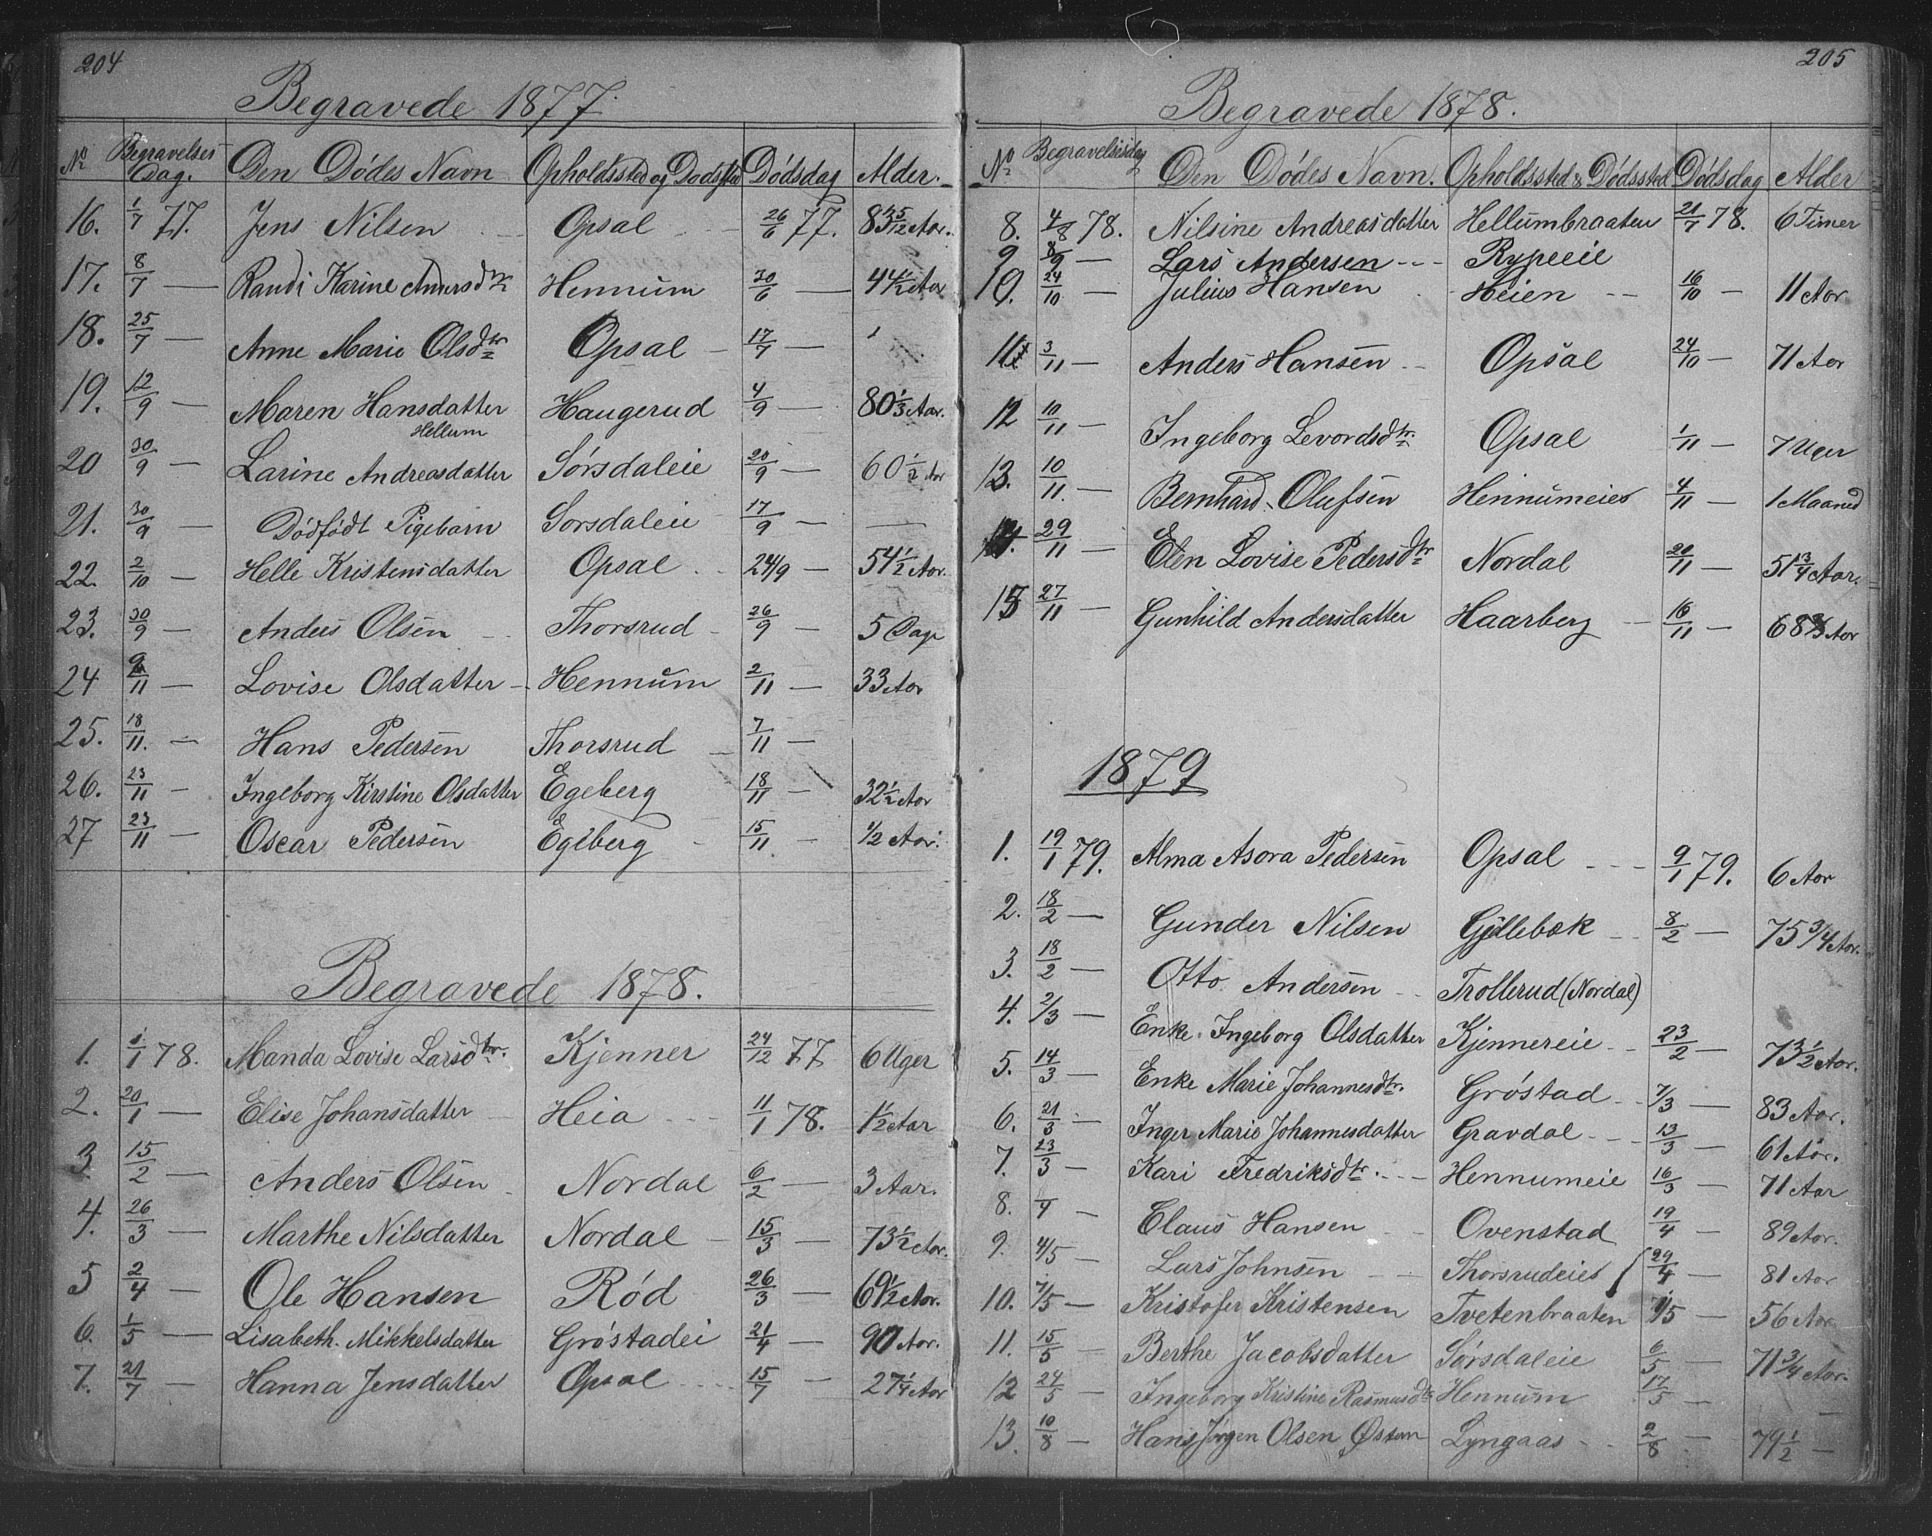 204
Begravede 1877.
No Begravelses Dag. Den Dødes Navn Opholdssted og Dødssted Dødsdag Alder.
16. 1/7 77. Jens Nilsen Opsal 26/6 77. 83 5/12 Aar.
17. 8/7 — Randi Karine Hennum 30/6 — 44 1/2 Aar
18. 25/7 — Anne Marie Olsdtr Opsal — 17/7 —
19. 12/9 — Maren Hansdatter Haugerud 4/9 — 80 1/3 Aar.
Hellum
20 30/9 — Larine Andreasdatter Sørsdaleie 20/9 — 60 1/2 Aar
21. 30/9 — Dødfødt Pigebarn Sorsdaleie 17/9 — —
22. 2/10 — Helle Kristensdatter Opsal 24/9 — 54 1/2 Aar.
23. 30/9 — Anders Olsen Thorsrud 26/9 — 5 Dage
24 /11 — Lovise Olsdatter Hennum 2/11 — 33 Aar
25. 18/11. — Hans Pedersen Thorsrud 7/11 —
26. 23/11 — Ingeborg Kirstine Olsdatter Egeberg 18/11 — 32 1/2 Aar
27 23/11 — Oscar Pedersen Egeberg 15/11 — 1/2 Aar.
Begravede 1878.
1. 1/1 78. Manda Lovise Larsdtr. Kjenner 24/12 77 6 Uger
2. 20/1 — Elise Johansdatter Heia 11/1 78. 1 1/2 Aar
3. 15/2 — Anders Olsen Nordal 6/2 — 3 Aar.
4. 26/3 — Marthe Nilsdatter Nordal 15/3 — 73 1/2 Aar.
5 2/4 — Ole Hansen Rød 26/3 — 69 1/2 Aar.
6. 1/5 — Lisabeth Mikkelsdatter Grøstadei 21/4 — 90 Aar.
7. 21/7 — Hanna Jensdatter Opsal 15/7 — 27 1/4 Aar
205
Begravede 1878.
No Begravelsesdag Den Dødes Navn. Opholdssted & Dødssted Dødsdag Alder
8. 4/8 78. Nilsine Andreasdatter Hellumbraaten 21/7 78. 6 Timer
9 8/9 — Lars Andersen Rypeeie
10. 24/10 — Julius Hansen Heien 16/10 — 11 Aar
11 3/11 — Anders Hansen Opsal 24/10 — 71 Aar
12 10/11 — Ingeborg Levordsdtr. Opsal 1/11 — 7 Uger
13. 10/11. — Bernhard Olufsen Hennumeies 4/11 — 1 Maaned
14. 29/11 — Elen Lovise Pedersdtr Nordal 20/11 — 51 3/4 Aar.
15 27/11 — Gunhild Andersdatter Haarberg 16/11 — 68 Aar
1879
1. 19/1 79. Alma Asora Pedersen Opsal 9/1 79. 6 Aar
2. 18/2 — Gunder Nilsen Gjellebæk 8/2 — 75 3/4 Aar.
3. 18/2 — Otto Andersen Trollerud (Nordal)
4. 2/3 — Enke Ingeborg Olsdatter Kjennereie 23/2 — 73 1/2 Aar.
5. 14/3 — Enke Marie Johannesdtr. Grøstad 7/3 — 83 Aar.
6. 21/3 — Inger Marie Johannesdatter Gravdal 13/3 — 61 Aar.
7. 23/3 — Kari Fredriksdtr. Hennumeie 16/3 — 71 Aar
8. /4 — Claus Hansen Ovenstad 19/4 — 89 Aar.
9. 4/5 — Lars Johnsen Thorsrudeies 29/4 — 81 Aar
10. 7/5 — Kristofer Kristensen Tvetenbraaten 1/5 — 56 Aar
11. 15/5 — Berthe Jacobsdatter Sørsdaleie 6/5 — 71 3/4 Aar.
12 24/5 — Ingeborg Kristine Rasmusdtr Hennum 17/5 — —
13. 10/8 — Hans Jørgen Olsen Østern Lyngaas 2/8 — 79 1/2 —